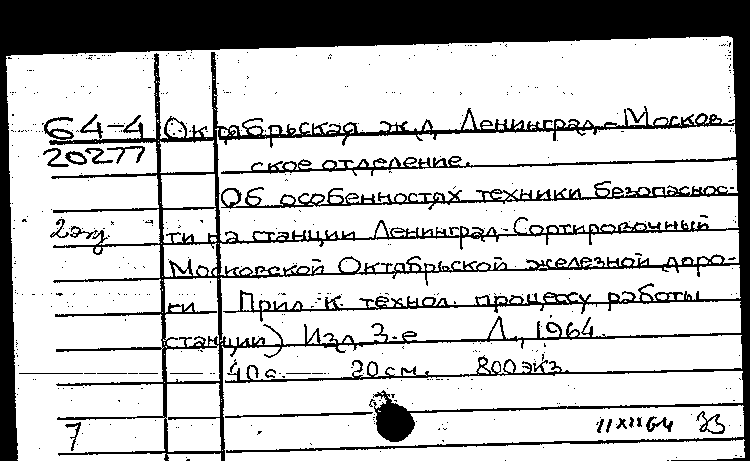 64-4 Октябрьская ж.д. Ленинград-Москов-
20277 ское отделение.
Об особенностях техники безопаснос-
2 экз ти на станции Ленинград-Сортировочный
Московской Октябрьской железной доро-
ги Прил. к технол. процессу работы
станции) Изд. 3-е Л., 1964.
40 с. 20 см. 800 экз.
7 11 XII 64